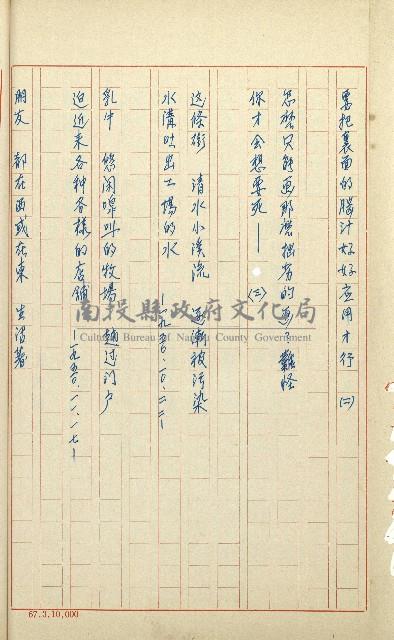 要把裏面的腦汁好好应用才行 (二)
怎麼只能画那麼拙劣的画?難怪
你才会想要死—— (三)
这條街 清水小溪流 逐漸被污染
水溝吐出工場的水 —一九五〇.一〇.二二—
乳牛 悠闲嗥叫的牧場 越过门户
迫近来各种各樣的店舖 —一九五〇.一一.一七—
朋友 都在西或在東 生活著
南投縣政府文化局
Cultural Bureau of Nantou County Government
67.3.10,000